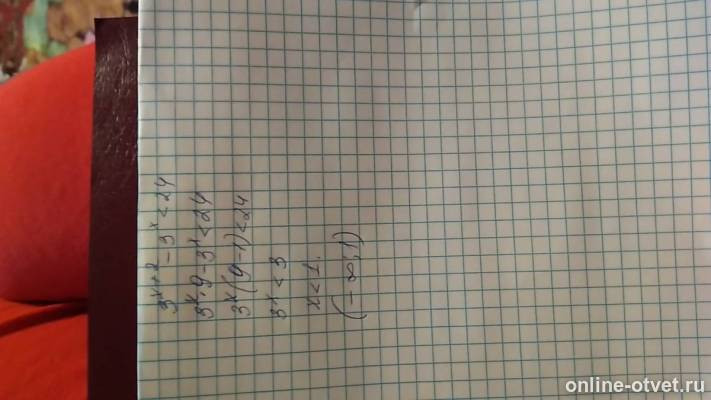 3^(x+2) - 3^x < 24
3^x · 9 - 3^x < 24
3^x (9 - 1) < 24
3^x < 3
x < 1.
(-∞; 1)
online-otvet.ru